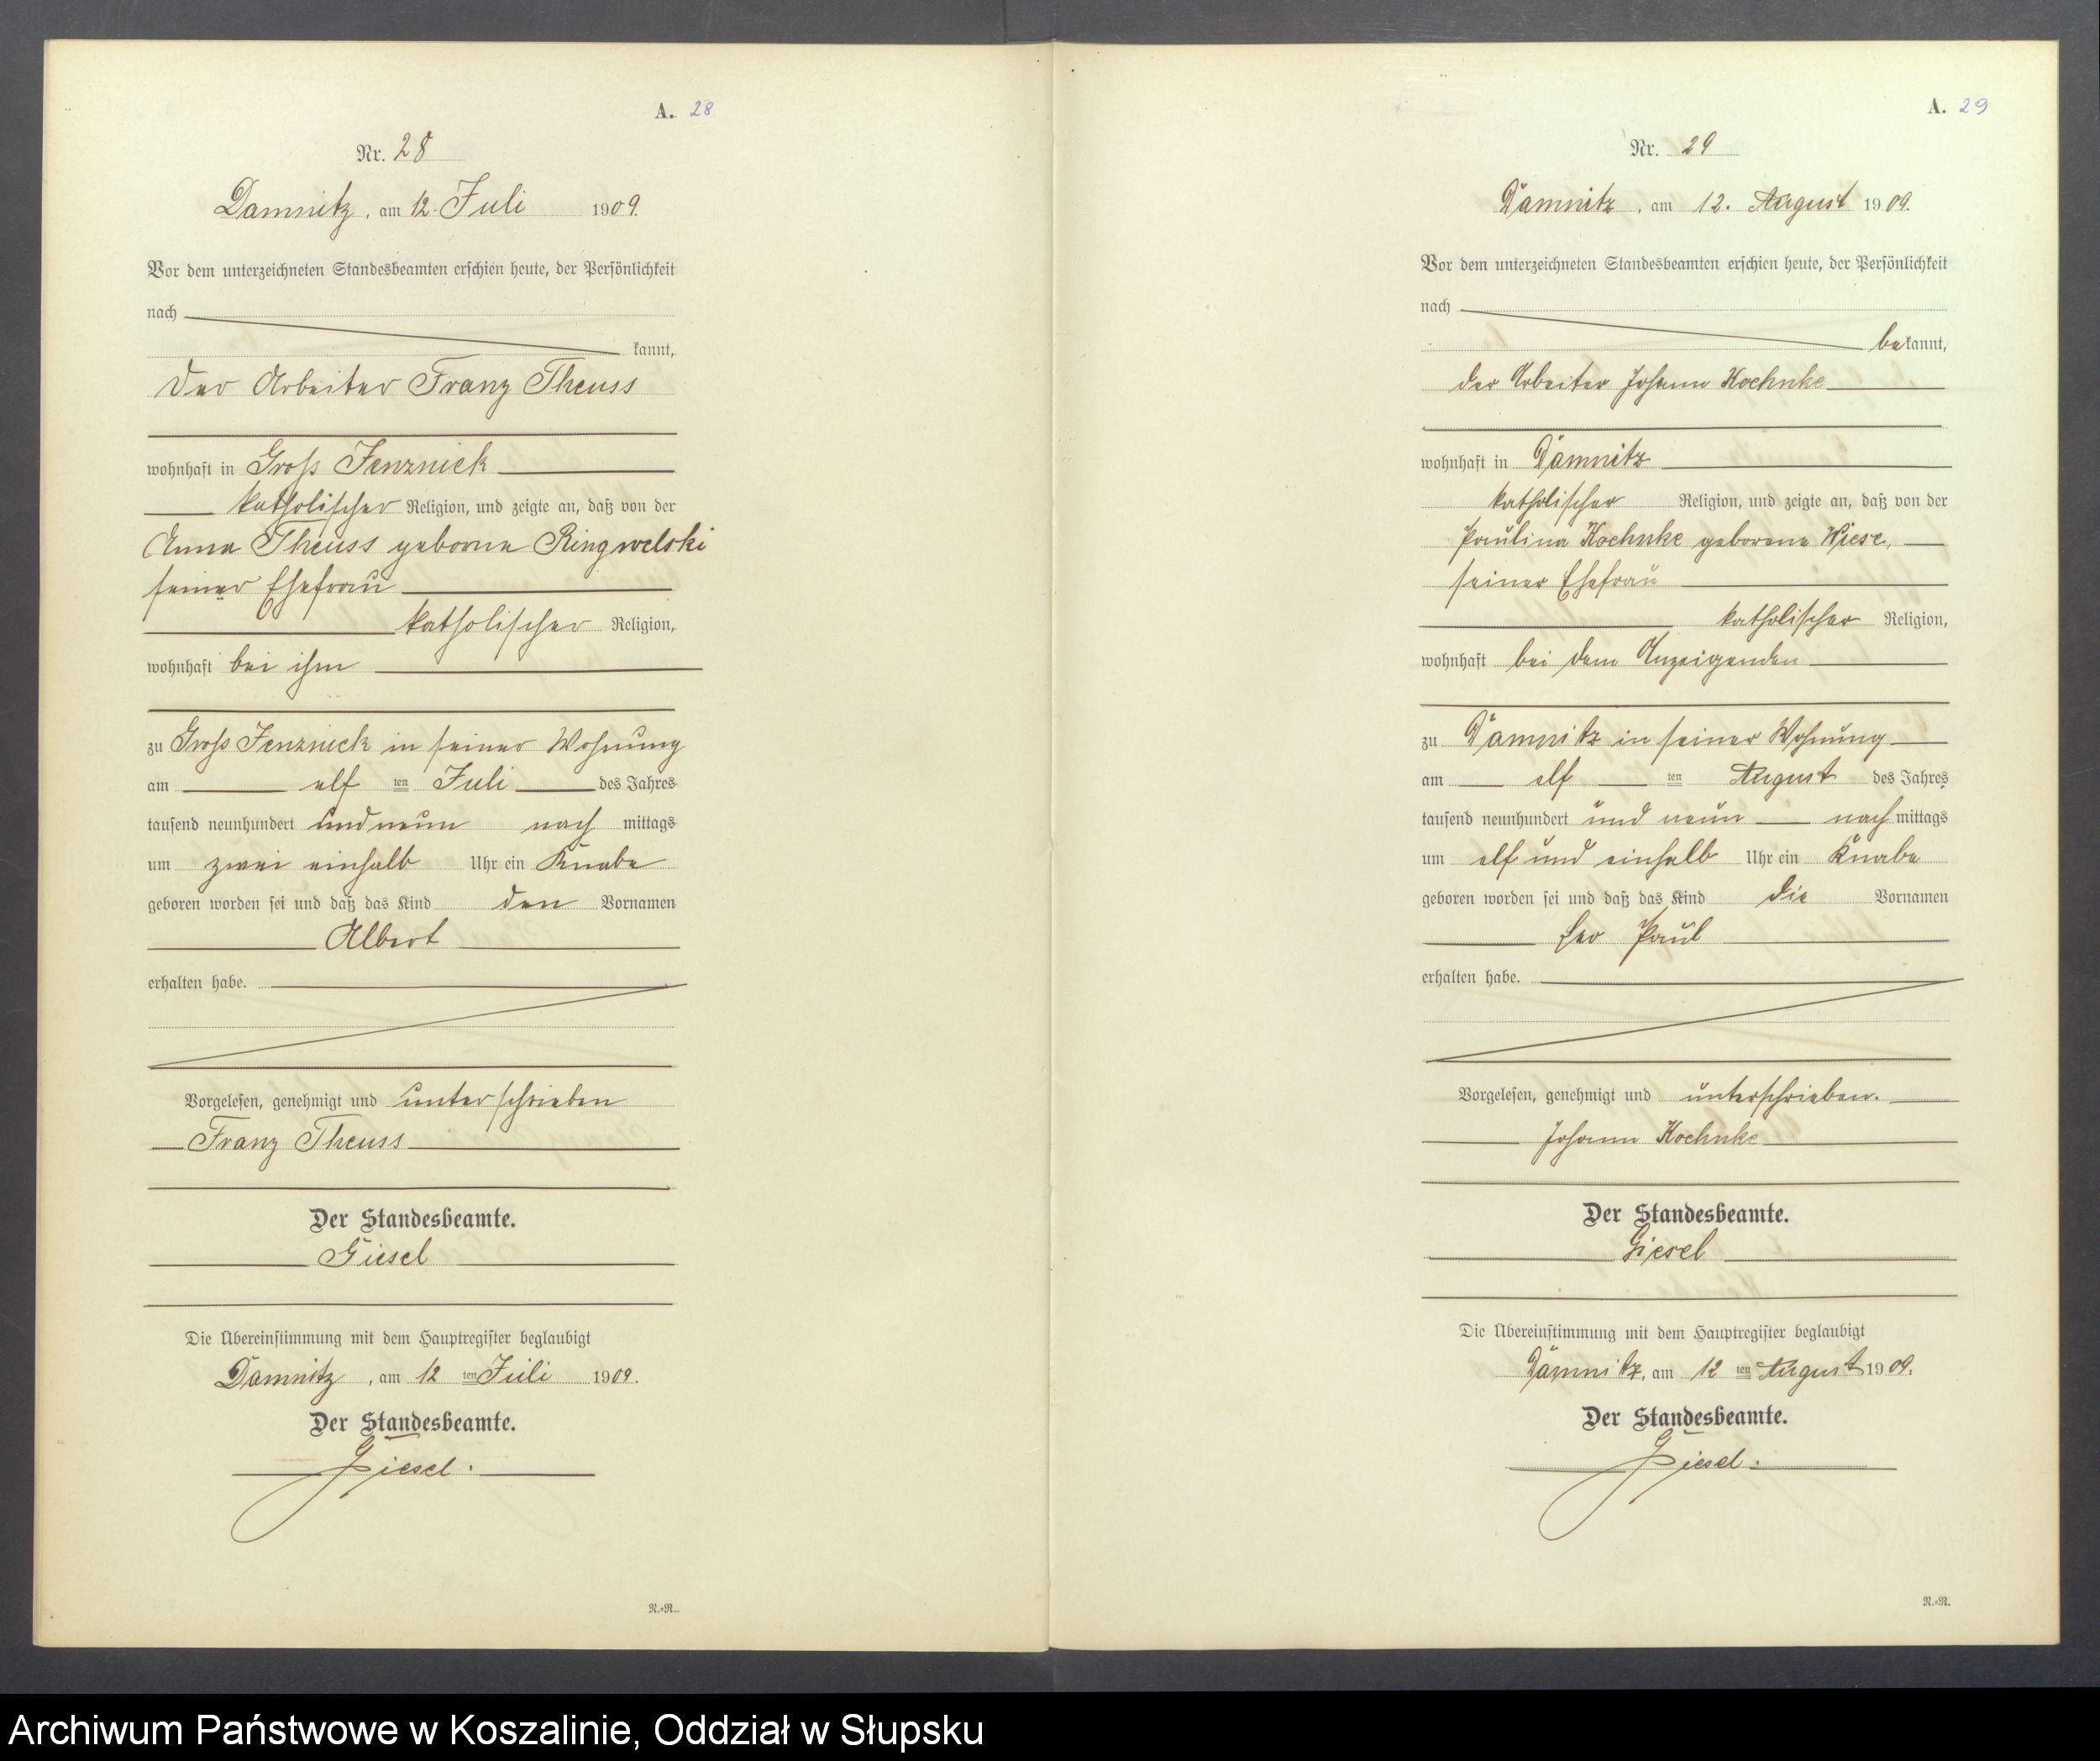 A. 28
Nr. 28
Damnitz, am 12. Juli 1909.
Vor dem unterzeichneten Standesbeamten erschien heute, der Persönlichkeit
nach
kannt,
der Arbeiter Franz Theuss
wohnhaft in Gross Jenznick
katholischer Religion, und zeigte an, daß von der
Anna Theuss geborne Ringwelski
seiner Ehefrau
katholischer Religion,
wohnhaft bei ihm
zu Gross Jenznick in seiner Wohnung
am elf ten Juli des Jahres
tausend neunhundert und neun nach mittags
um zwei einhalb Uhr ein Knabe
geboren worden sei und daß das Kind den Vornamen
Albert
erhalten habe.
Vorgelesen, genehmigt und unterschrieben
Franz Theuss
Der Standesbeamte.
Giesel
Die Übereinstimmung mit dem Hauptregister beglaubigt
Damnitz, am 12 ten Juli 1909.
Der Standesbeamte.
Giesel.
N.-R.
A. 29
Nr. 29
Damnitz, am 12. August 1909.
Vor dem unterzeichneten Standesbeamten erschien heute, der Persönlichkeit
nach
bekannt,
der Arbeiter Johann Kochnke
wohnhaft in Damnitz
katholischer Religion, und zeigte an, daß von der
Paulina Kochnke geborene Wiese,
seiner Ehefrau
katholischer Religion,
wohnhaft bei dem Anzeigenden
zu Damnitz in seiner Wohnung
am elf ten August des Jahres
tausend neunhundert und neun nach mittags
um elf und einhalb Uhr ein Knabe
geboren worden sei und daß das Kind die Vornamen
Paul
erhalten habe.
Vorgelesen, genehmigt und unterschrieben.
Johann Kochnke
Der Standesbeamte.
Giesel
Die Übereinstimmung mit dem Hauptregister beglaubigt
Damnitz, am 12 ten August 1909.
Der Standesbeamte.
Giesel.
N.-R.
Archiwum Państwowe w Koszalinie, Oddział w Słupsku